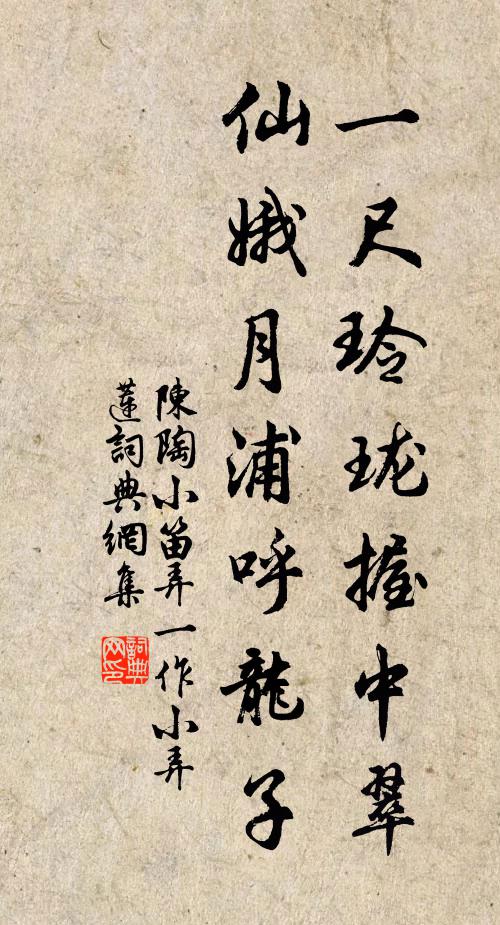 一尺玲珑握中翠
仙娥月浦呼龍子
陳陶小笛弄一作小弄
蓮詞典網集
詞典网印